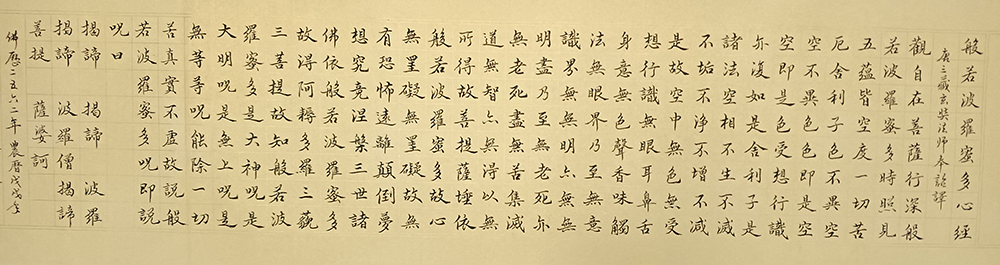 般若波羅蜜多心經
唐三藏玄奘法師奉詔譯
觀自在菩薩行深般
若波羅蜜多時照見
五蘊皆空度一切苦
厄舍利子色不異空
空不異色色即是空
空即是色受想行識
亦復如是舍利子是
諸法空相不生不滅
不垢不淨不增不減
是故空中無色無受
想行識無眼耳鼻舌
身意無色聲香味觸
法無眼界乃至無意
識界無無明亦無無
明盡乃至無老死亦
無老死盡無苦集滅
道無智亦無得以無
所得故菩提薩埵依
般若波羅蜜多故心
無罣礙無罣礙故無
有恐怖遠離顛倒夢
想究竟涅槃三世諸
佛依般若波羅蜜多
故得阿耨多羅三藐
三菩提故知般若波
羅蜜多是大神呪是
大明呪是無上呪是
無等等呪能除一切
苦真實不虛故說般
若波羅蜜多呪即說
呪曰
揭諦 揭諦 波羅
揭諦 波羅僧揭諦
菩提 薩婆訶
佛曆二五六二年 農曆戊戌年